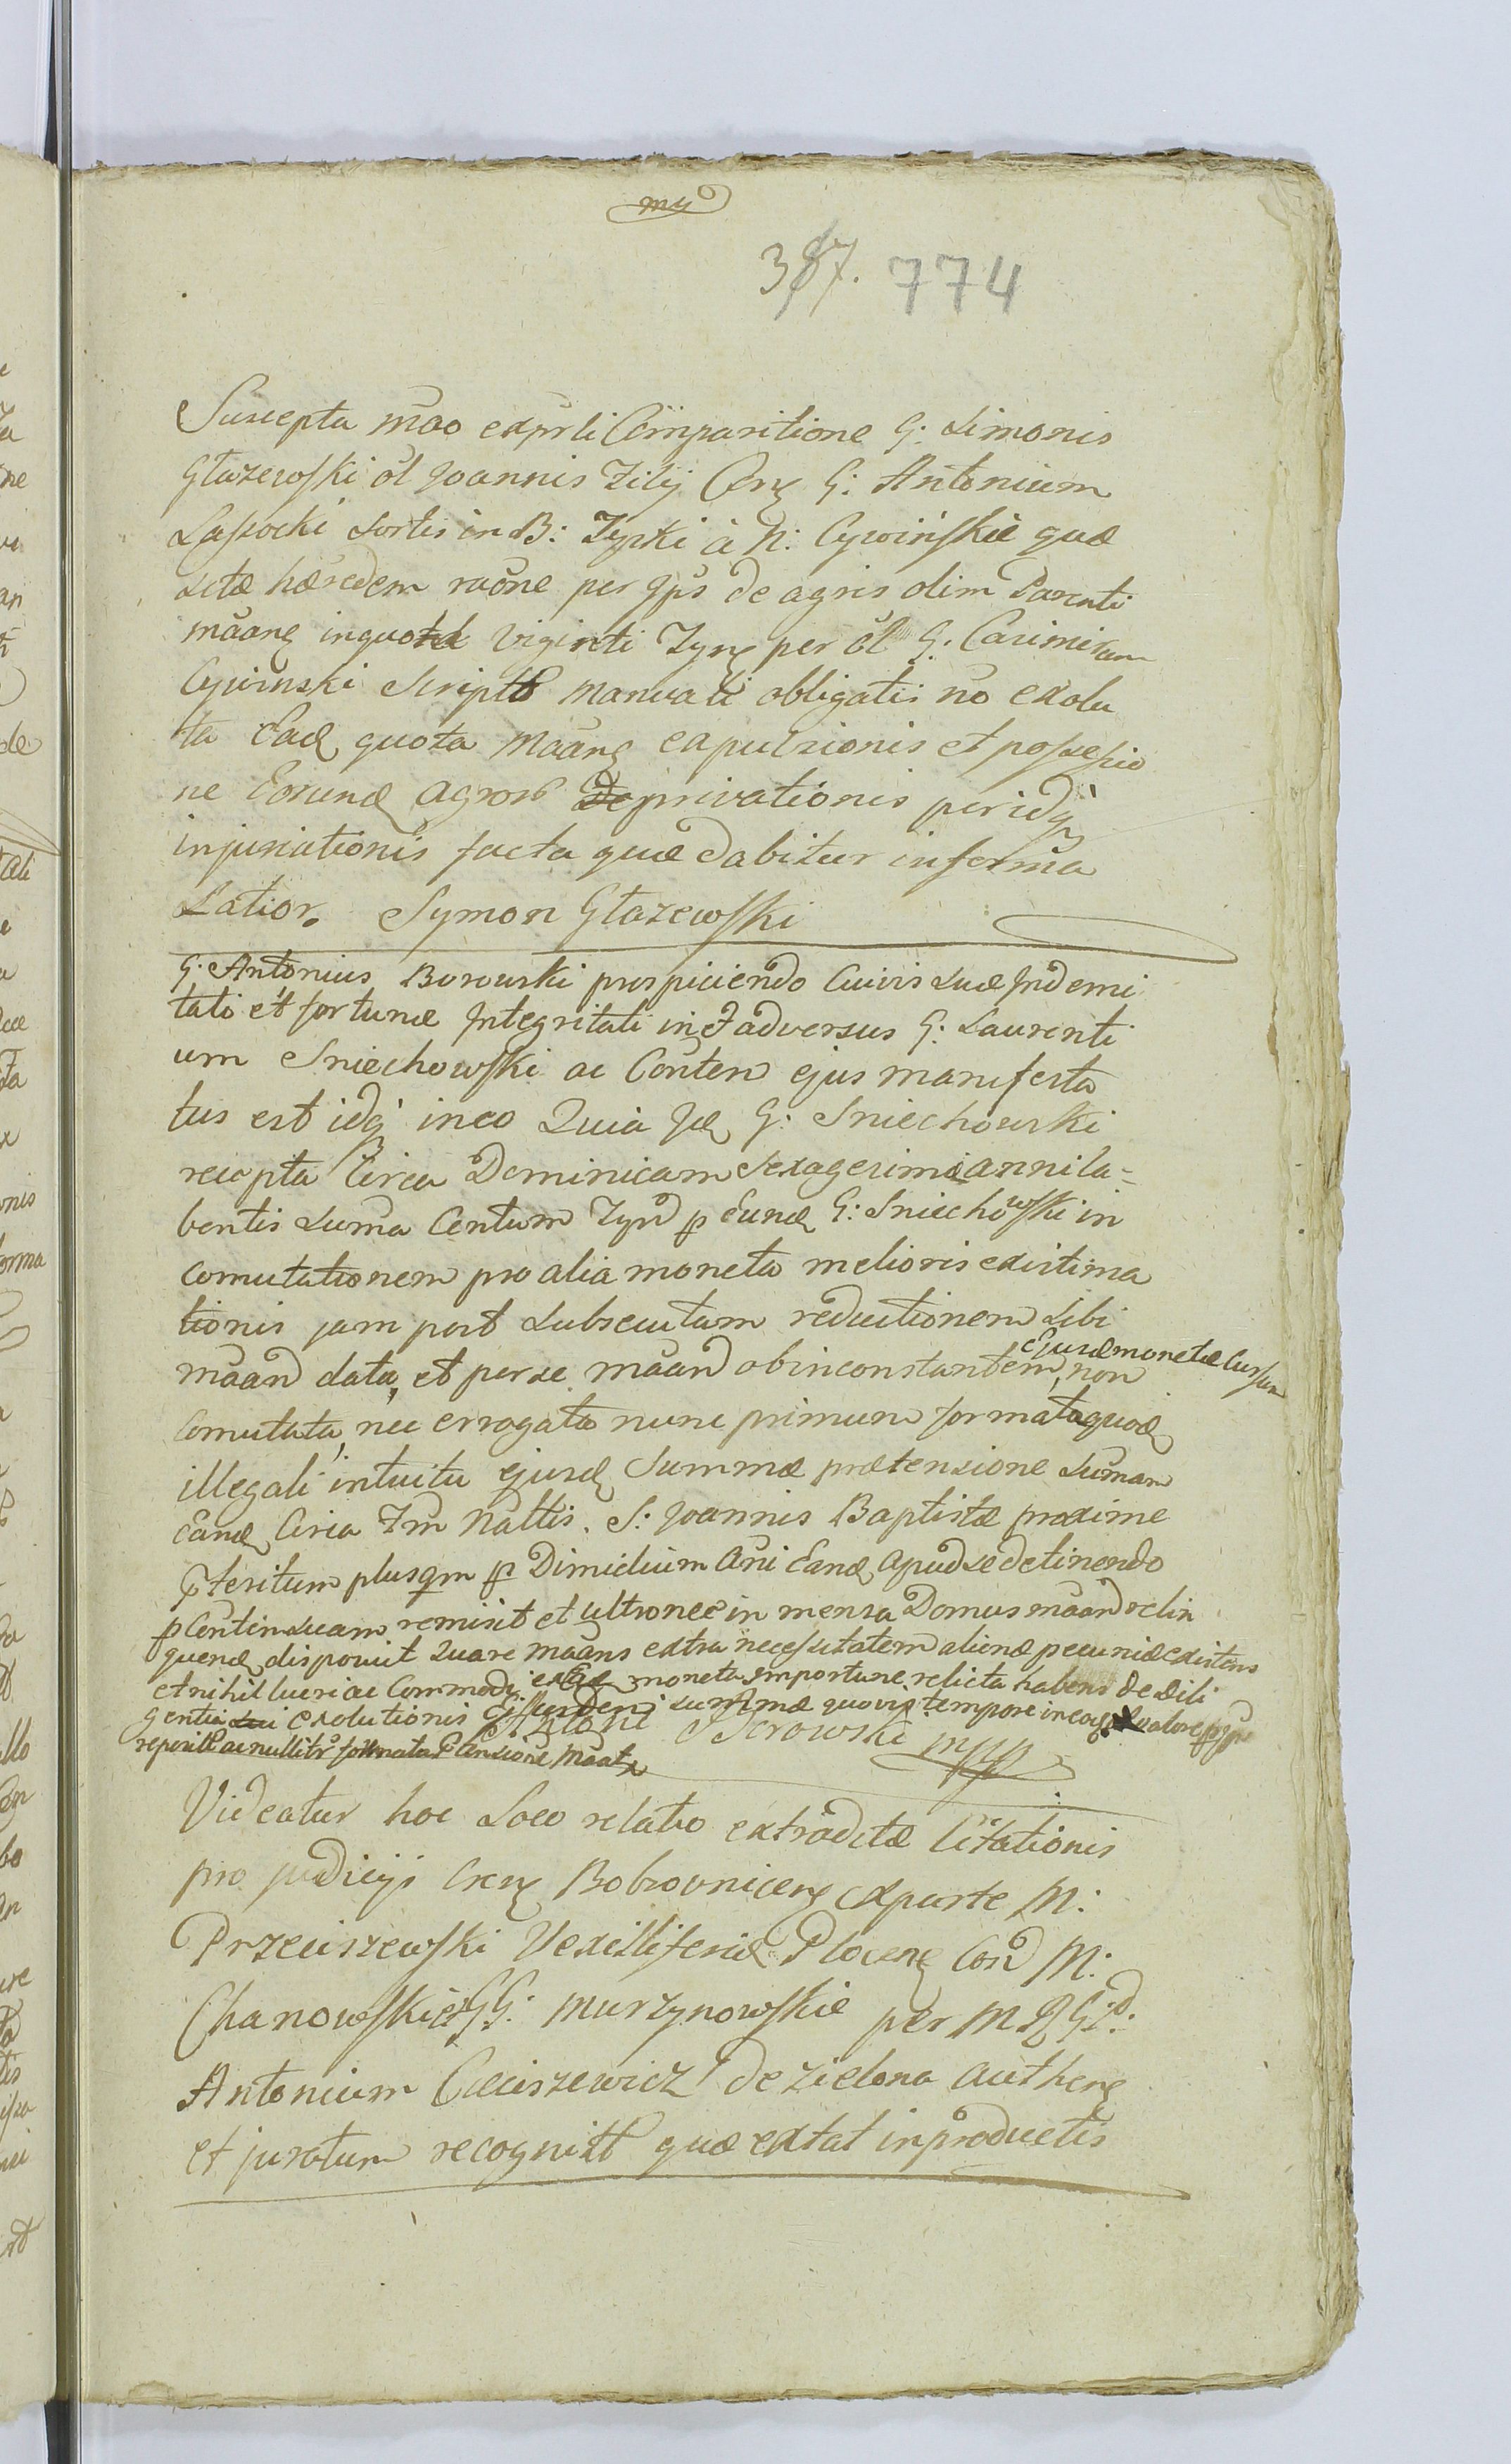 my
387. 774
Suscepta mão exprli Comparitione G: Simonis
Głazewski ol Joannis Filij Con G: Antonium
Lassocki Sortis in B: Zyrki à N: Cywińskie quæ
sitæ hæredem raõne per ips de agris olim Parenti
mãang inquota Viginti Tyn per ol G. Casimirum
Cywinski Script manuali obligatis nõ exolu
ta Ead quota Mãang expulsionis et possessio
ne Eorund agror Deprivationis peridq
injuriationis facta quæ dabitur in forma
Latior. Symon Głazewski
G. Antonius Borowski prospiciendo Cuivis suæ Indemi
tati et fortunæ Integritati in et adversus G: Laurenti
um Sniechowski ac Conten ejus manifesta
tus est idq in eo Quia Id G: Sniechowski
recepta Circa Dominicam Sexagesimæ anni la-
bentis Suma Centum Tyn p Eund G: Sniechowski in
comutationem pro alia moneta melioris existima
tionis jam post subsecutam reductionem Sibi
mãand data, et per se mãand ob inconstantem ejusd monetæ Cursum, non
Comutata, nec errogata nunc primum formataquoq
illegali intuitu ejusd Summæ prætensione Sumam
Eand Circa Fm Nattis. S: Joannis Baptistæ proxime
pteritum plusqm p Dimidium Ani Eand apud se detinendo
p Conten suam remisit et ultronee in mensa Domus mãand relin
quend disposuit Quare mãans extra necessitatem alienæ pecuniæ existens
et nihil lucri ac Commodi ex Ead moneta importune relicta habens de Dili
gentia exolutionis ejusdem Summæ quovis tempore in eog valore
Antoni Borowski mpp
reposit ac nullitr formata Ptensione Mãatr
Videatur hoc Loco relatio extraditæ Citationis
pro judicijs Cren Bobrovnicen exparte M:
Przeciszewski Vexilliferid Plocen Con M:
Chanowskie GG: Murzynowskie per M
Antonium Cieciszewicz de Zielona authen
et juratum recognitt quæ extat in productis